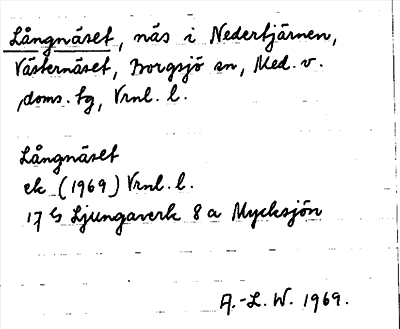 Långnäset, näs i Nedertjärnen,
Västernäset, Borgsjö sn, Med. v.
doms. tg, Vrnl. l.
Långnäset
ek (1969) Vrnl. l.
17 G Ljungaverk 8 a Mycksjön
A.-L. W. 1969.